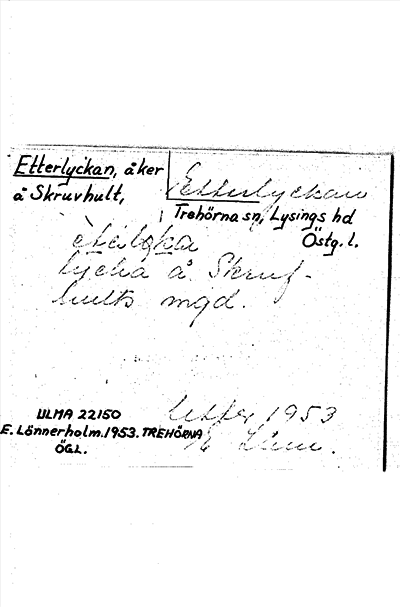 Etterlyckan, åker
å Skruvhult,
Etterlyckan
Trehörna sn, Lysings hd
Östg. l.
lycka å Skruf-
hults mgd.
1953
ULMA 22150
E. Lönnerholm. 1953. TREHÖRNA
ÖGL.